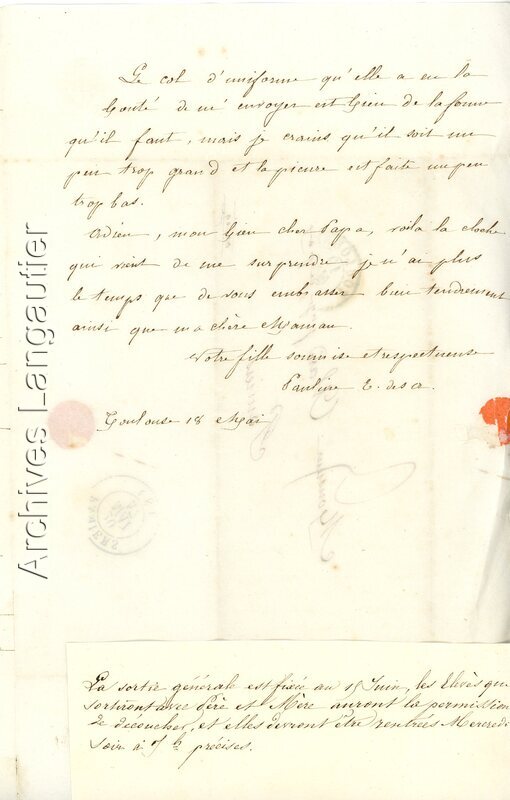 Le col d'uniforme qu'elle a eu la
bonté de m'envoyer est bien de la forme
qu'il faut, mais je crains qu'il soit un
peu trop grand et la piqure est faite un peu
trop bas.
Adieu, mon bien cher Papa, voila la cloche
qui vient de me surprendre je n'ai plus
le temps que de vous embrasser bien tendrement
ainsi que ma chère Maman.
Votre fille soumise et respectueuse
Pauline
Toulouse 18 Mai
Archives Langautier
La sortie générale est fixée au 15 Juin, les Elevès qui
sortiront avec Père et Mère auront la permission
de découcher, et elles devront être rentrées Mercredi
soir à précises.